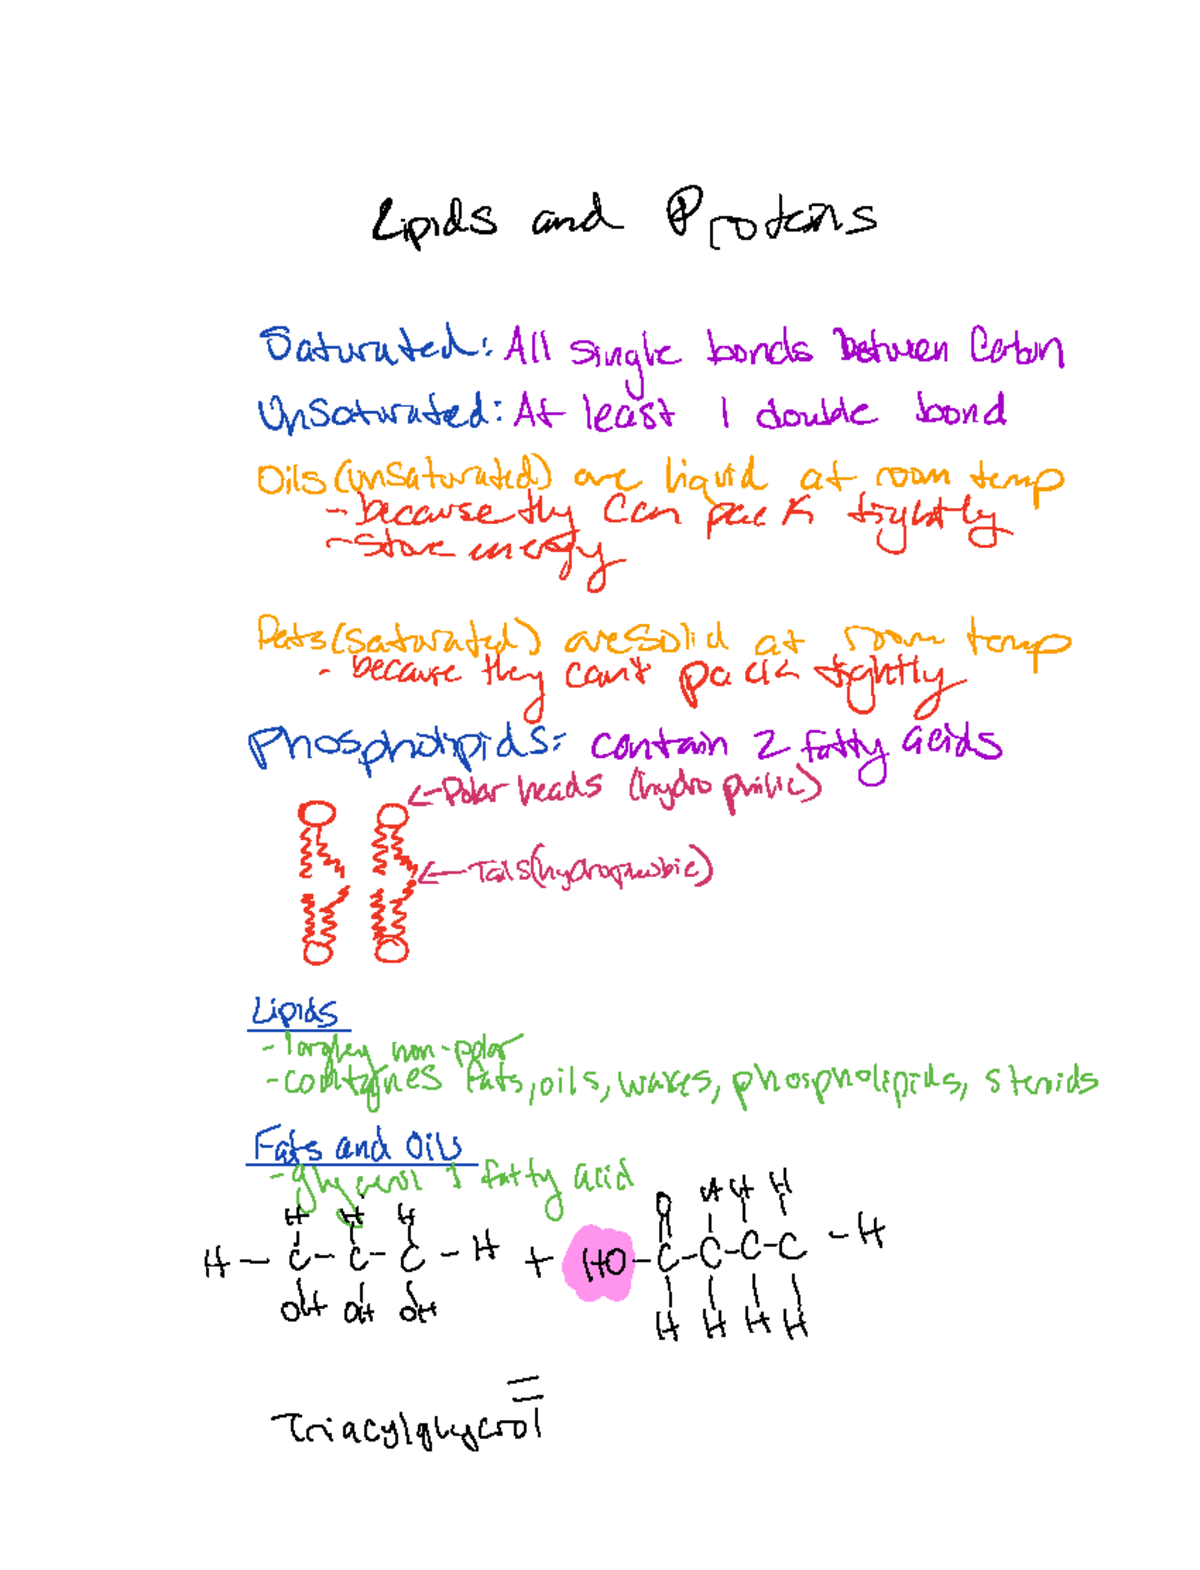 Lipids and Proteins
Saturated: All single bonds between Carbon
Unsaturated: At least 1 double bond
Oils (unsaturated) are liquid at room temp
- because they can pack tightly
- store energy
Fats (saturated) are solid at room temp
- because they can't pack tightly
Phospholipids: contain 2 fatty acids
← Polar heads (hydrophilic)
← Tails (hydrophobic)
Lipids
- largley non-polar
- fats, oils, waxes, phospholipids, steroids
Fats and Oils
- glycerol 1 fatty acid
H H H O H H H
H - C - C - C - H + HO - C - C - C - C - H
OH OH OH H H H H
=
Triacylglycerol